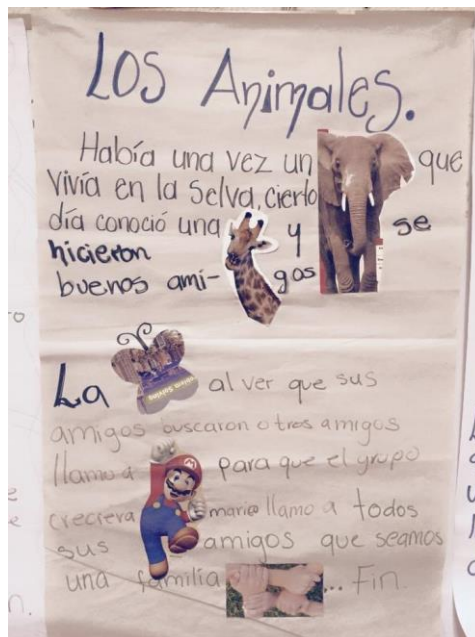 Los Animales.
Había una vez un que
vivía en la selva, cierto
día conoció una y se
hicieron
buenos ami- gos
La al ver que sus
amigos buscaron otros amigos
llamo a para que el grupo
creciera mario llamo a todos
sus amigos que seamos
una familia ... Fin.